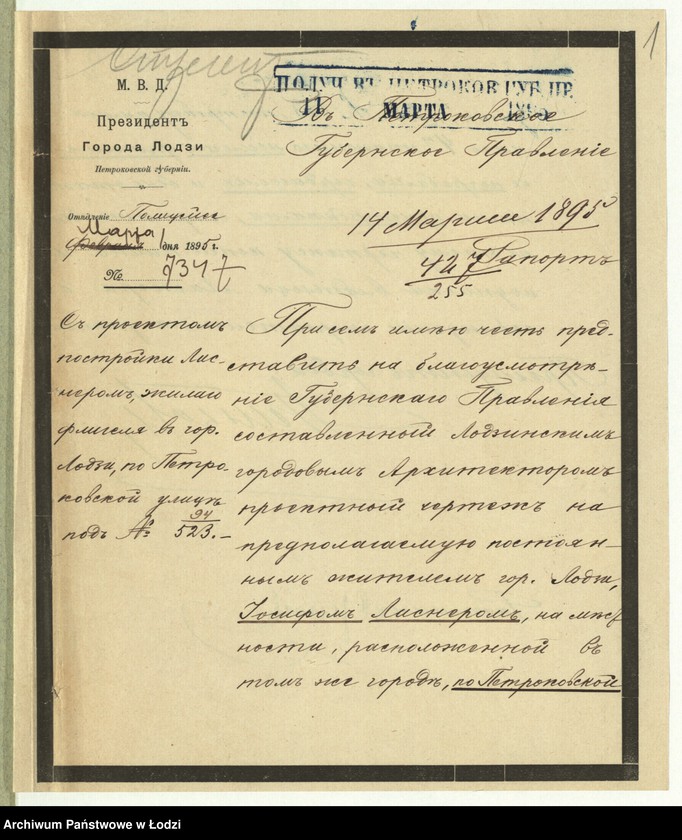 1
М. В. Д.
Президентъ
Города Лодзи
Петроковской губерніи.
Отдѣленіе Полицейское
Марта
Февраля 1 дня 1895 г.
№ 7347
ПОЛУЧ ВЪ ПЕТРОКОВ ГУБ. ПР.
11 МАРТА 1895
Въ Петроковское
Губернское Правленіе
14 Марта 1895
427
255
Рапортъ
Съ проектомъ
постройки Лис-
неромъ, жилаго
флигеля въ гор.
Лодзи, по Петро-
ковской улицѣ
подъ № 94
523.-
При семъ имѣю честь пред-
ставить на благоусмотрѣ-
ніе Губернскаго Правленія
составленный Лодзинскимъ
городовымъ Архитекторомъ
проектный чертежъ на
предполагаемую постоян-
нымъ жителемъ гор. Лодзи,
Іосифомъ Лиснеромъ, на мѣст-
ности, расположенной въ
томъ же городѣ, по Петроковской
Archiwum Państwowe w Łodzi